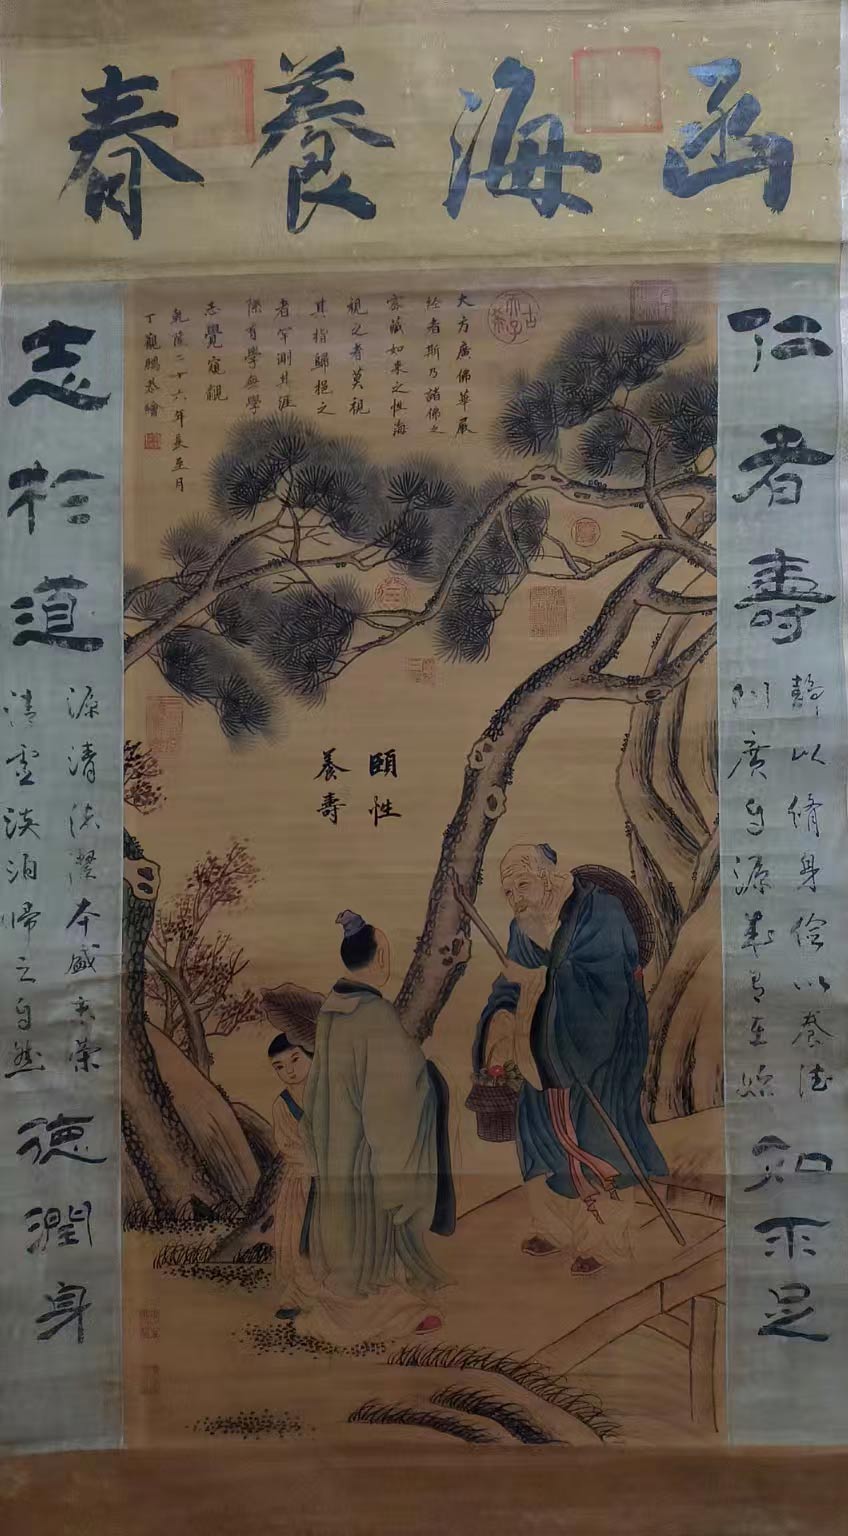 函海養春
仁者壽
靜以脩身儉以養德
川廣自源
知不足
古希天子
大方廣佛華嚴
經者斯乃諸佛之
密藏如來之性海
視之者莫視
其指歸挹之
者罕測其涯
際有學無學
志覺窺觀
乾隆二十六年長至月
丁觀鵬恭繪
頤性
養壽
志於道
源清流潔本盛末榮
清虛淡泊歸之自然
德潤身